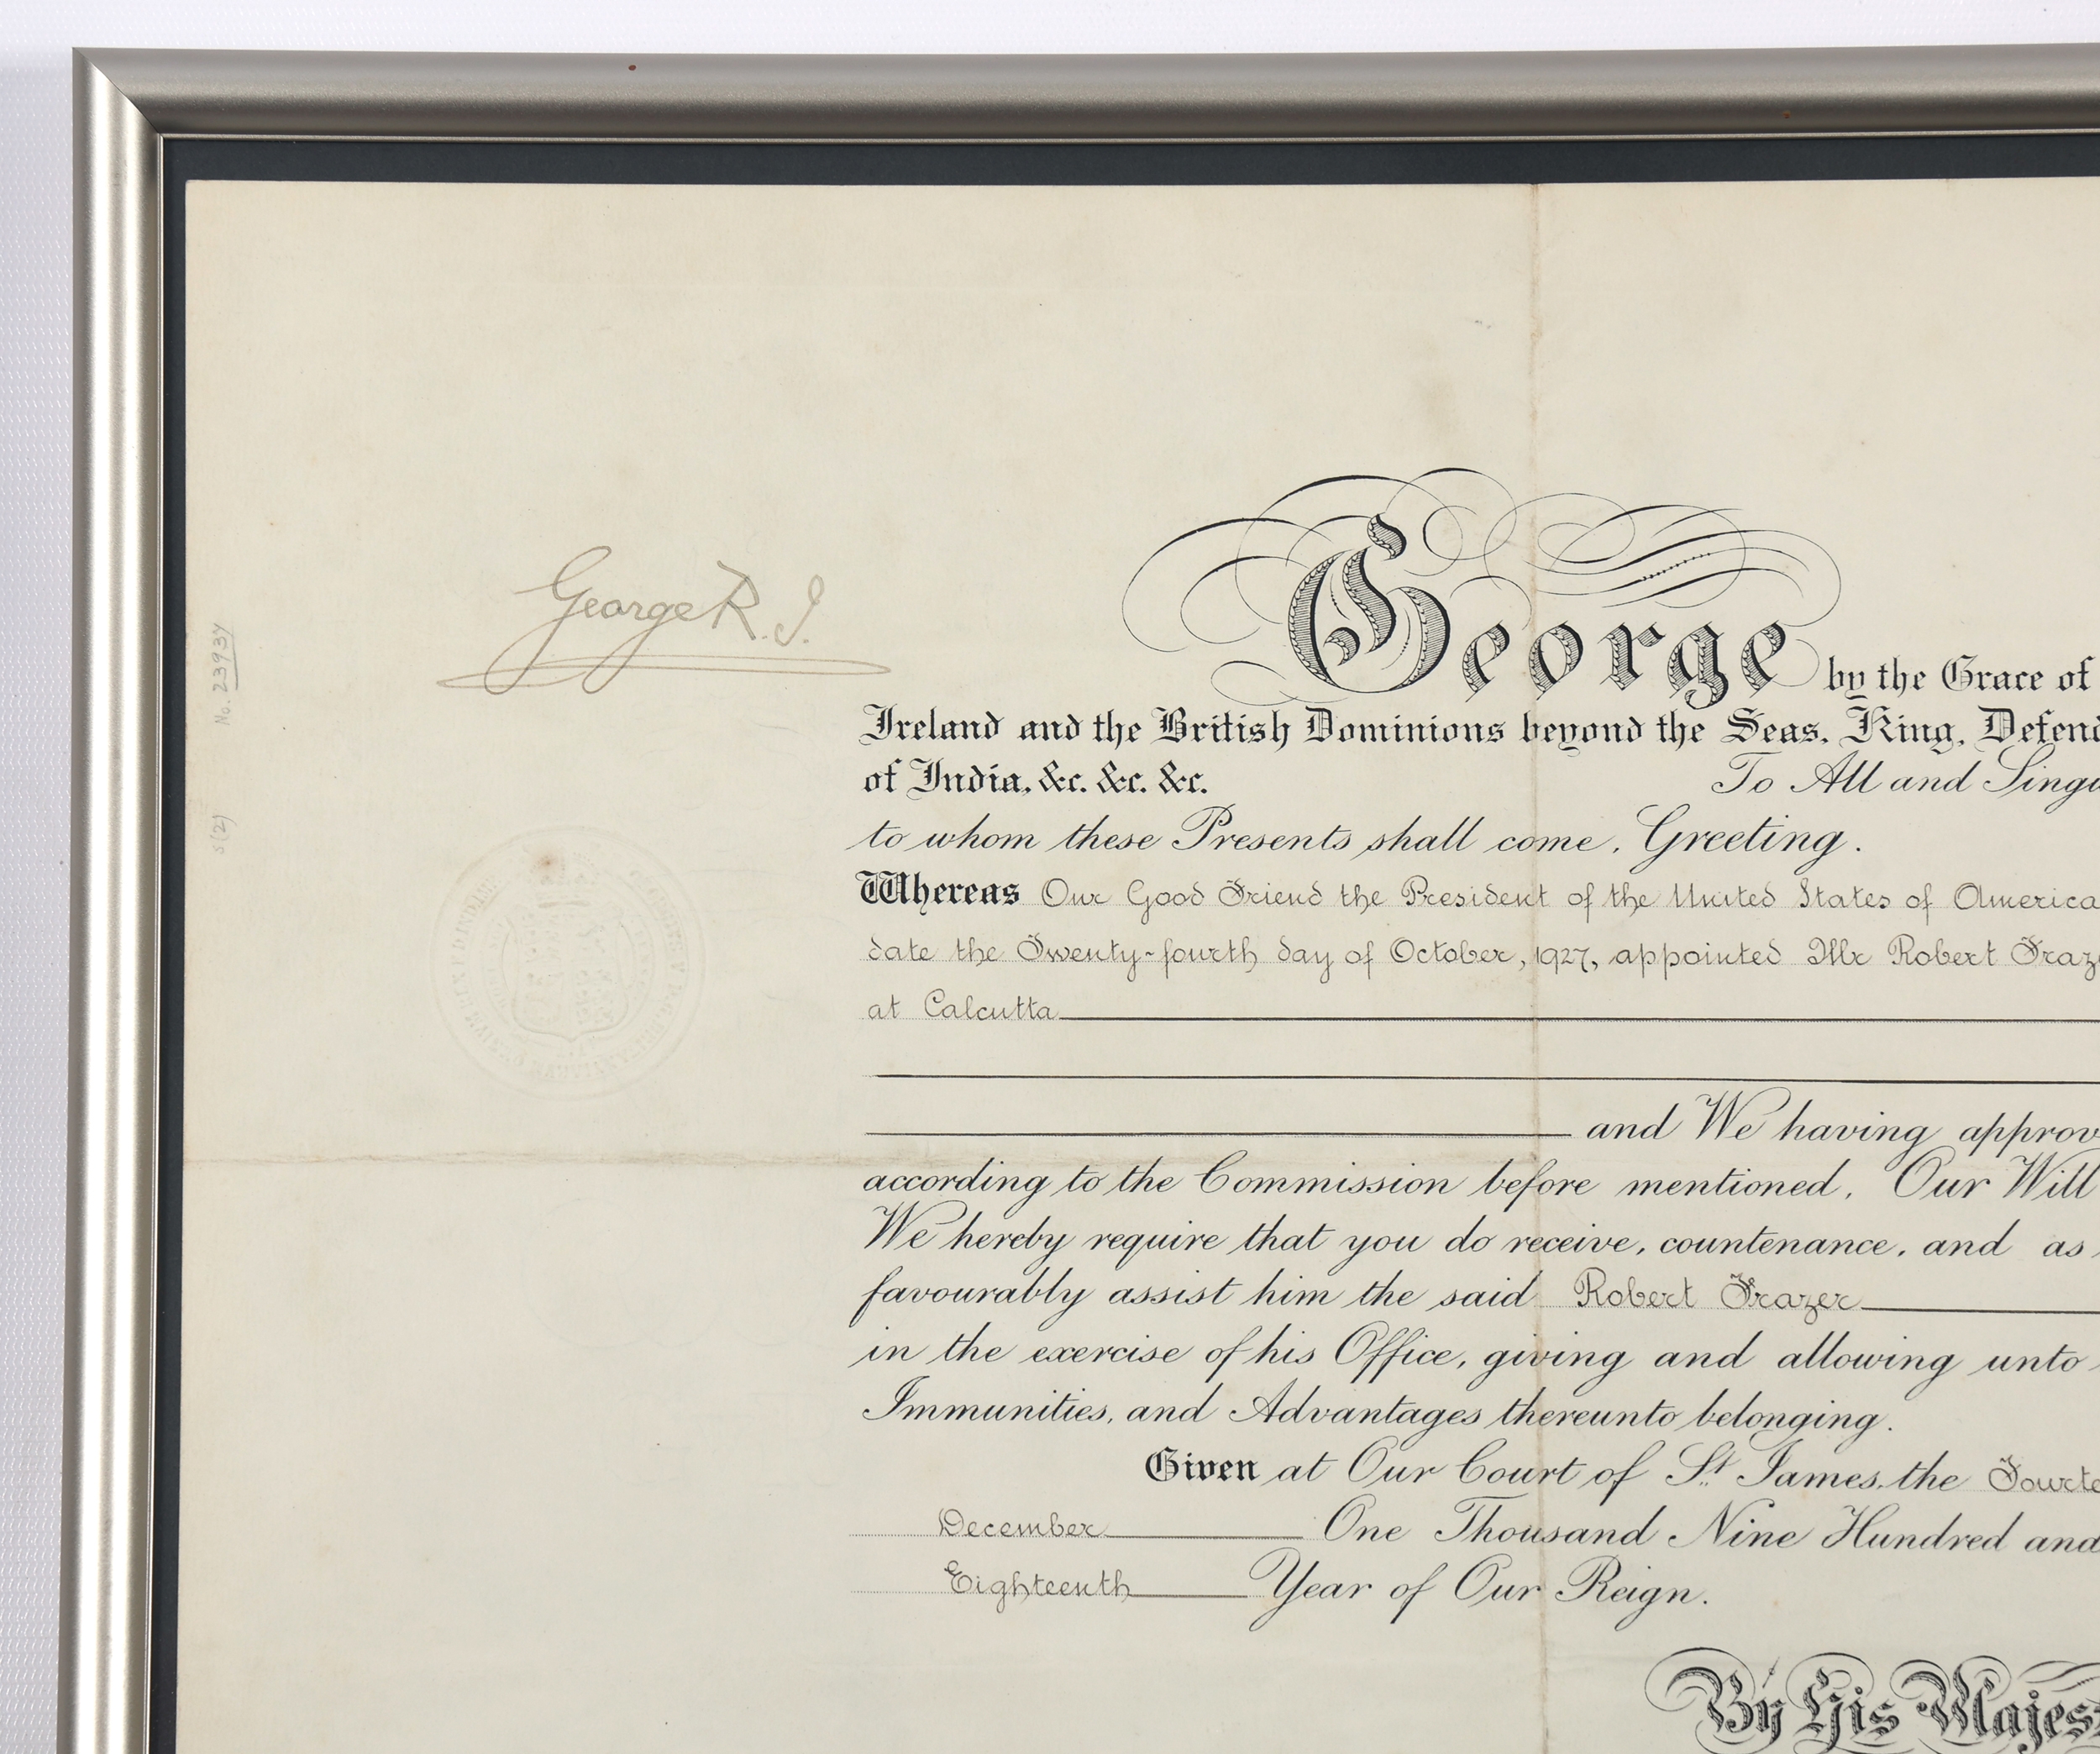 George R.I.
No. 23937
5(2)
George by the Grace of
Ireland and the British Dominions beyond the Seas, King, Defend
of India, &c. &c. &c. To All and Singu
to whom these Presents shall come, Greeting.
Whereas Our Good Friend the President of the United States of America
date the Twenty-fourth day of October, 1927, appointed Mr Robert Fraze
at Calcutta
and We having approv
according to the Commission before mentioned, Our Will
We hereby require that you do receive, countenance, and as
favourably assist him the said Robert Frazer
in the exercise of his Office, giving and allowing unto
Immunities, and Advantages thereunto belonging.
Given at Our Court of St. James, the Fourte
December One Thousand Nine Hundred and
Eighteenth Year of Our Reign.
By His Majes